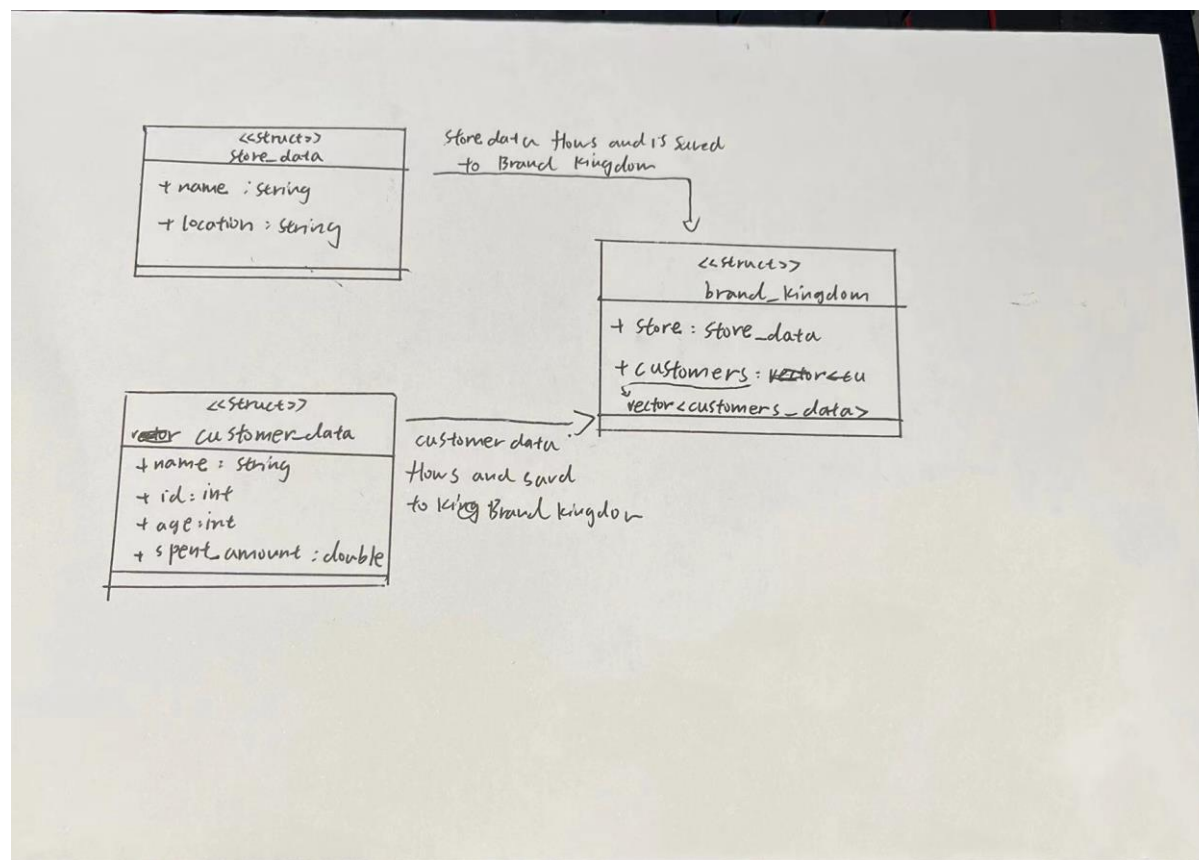 <<struct>>
store_data
+ name : string
+ location : string
store data flows and is saved
to Brand Kingdom
<<struct>>
brand_kingdom
+ store : store_data
+ customers : vector<cu
vector<customers_data>
<<struct>>
vector customer_data
+ name : string
+ id : int
+ age : int
+ spent_amount : double
customer data
flows and savd
to King Brand kingdom